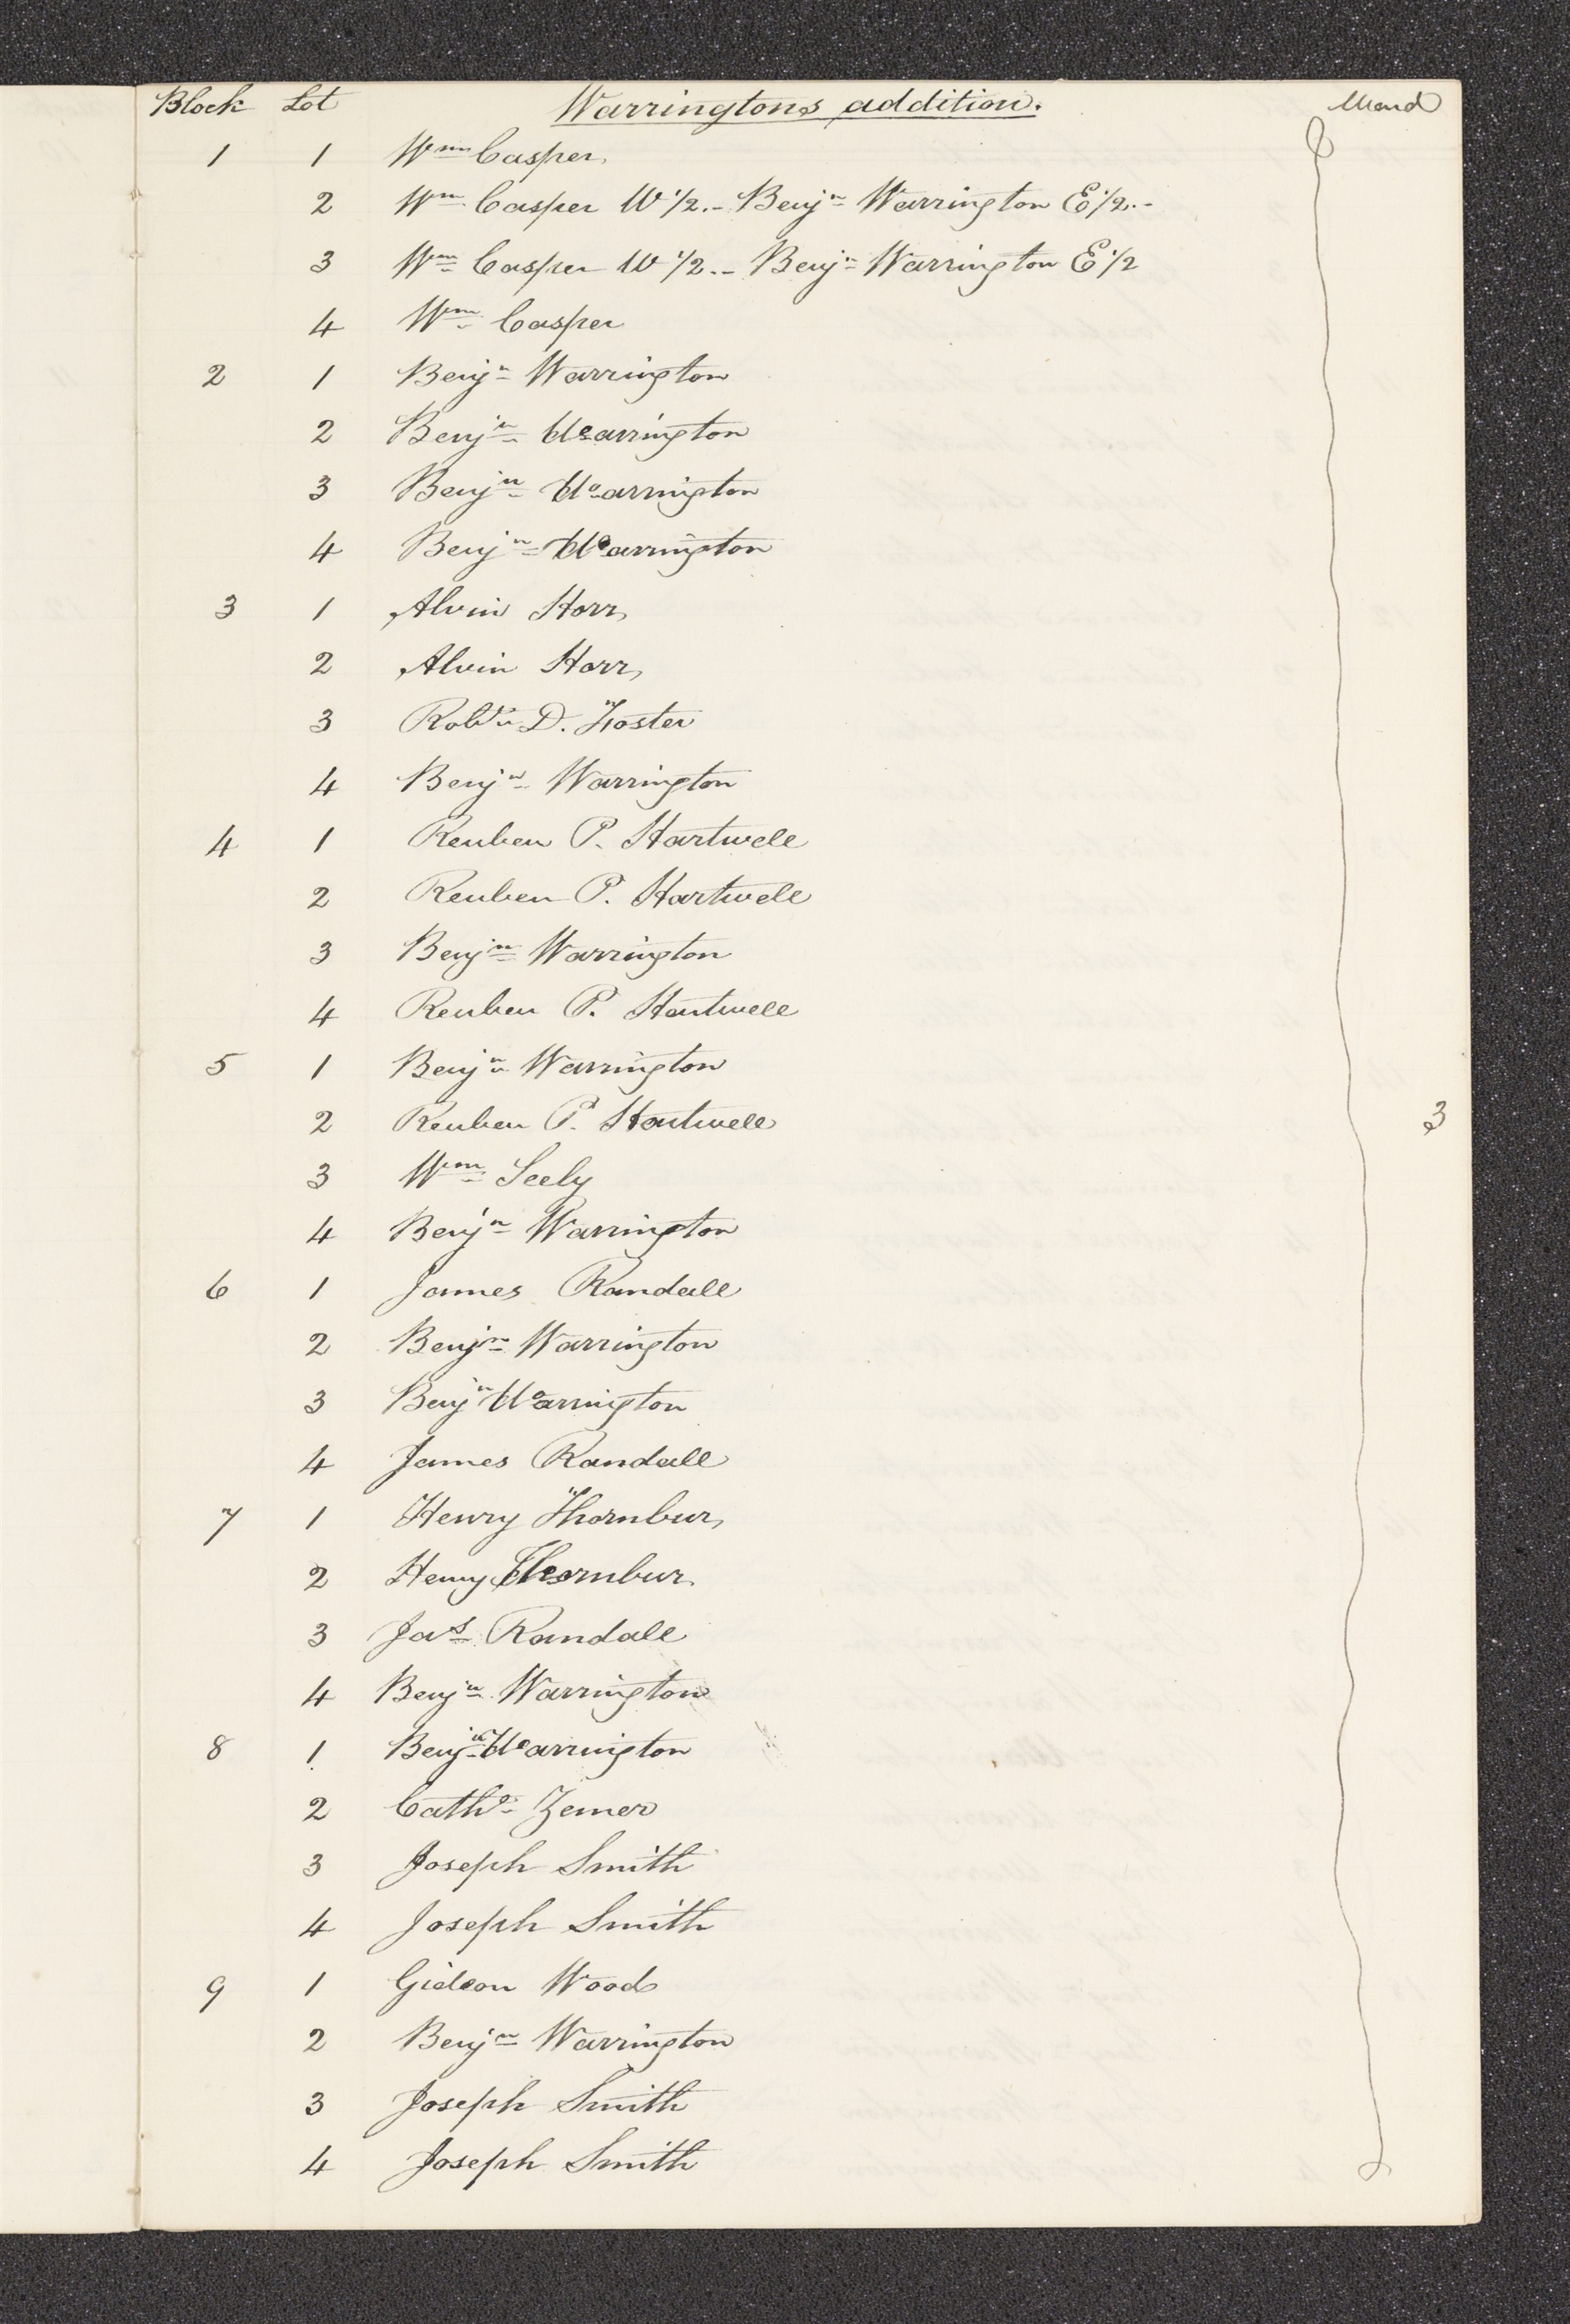 Block Lot Warringtons addition. Ward
1 1 Wm Casper
2 Wm Casper W 1/2.- Benjn Warrington E 1/2.-
3 Wm Casper W 1/2.- Benjn Warrington E 1/2
4 Wm Casper
2 1 Benjn Warrington
2 Benjn Warrington
3 Benjn Warrington
4 Benjn Warrington
3 1 Alvin Horr
2 Alvin Horr
3 Robt D. Foster
4 Benjn Warrington
4 1 Reuben P. Hartwell
2 Reuben P. Hartwell
3 Benjn Warrington
4 Reuben P. Hartwell
5 1 Benjn Warrington
2 Reuben P. Hartwell 3
3 Wm Seely
4 Benjn Warrington
6 1 James Randall
2 Benjn Warrington
3 Benjn Warrington
4 James Randall
7 1 Henry Thornbur
2 Henry Thornbur
3 Jas Randall
4 Benjn Warrington
8 1 Benjn Warrington
2 Cathe Zemer
3 Joseph Smith
4 Joseph Smith
9 1 Gideon Wood
2 Benjn Warrington
3 Joseph Smith
4 Joseph Smith